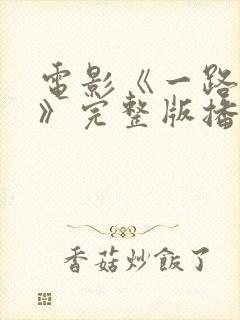 電影《一路
》完整版播
香菇炒飯了